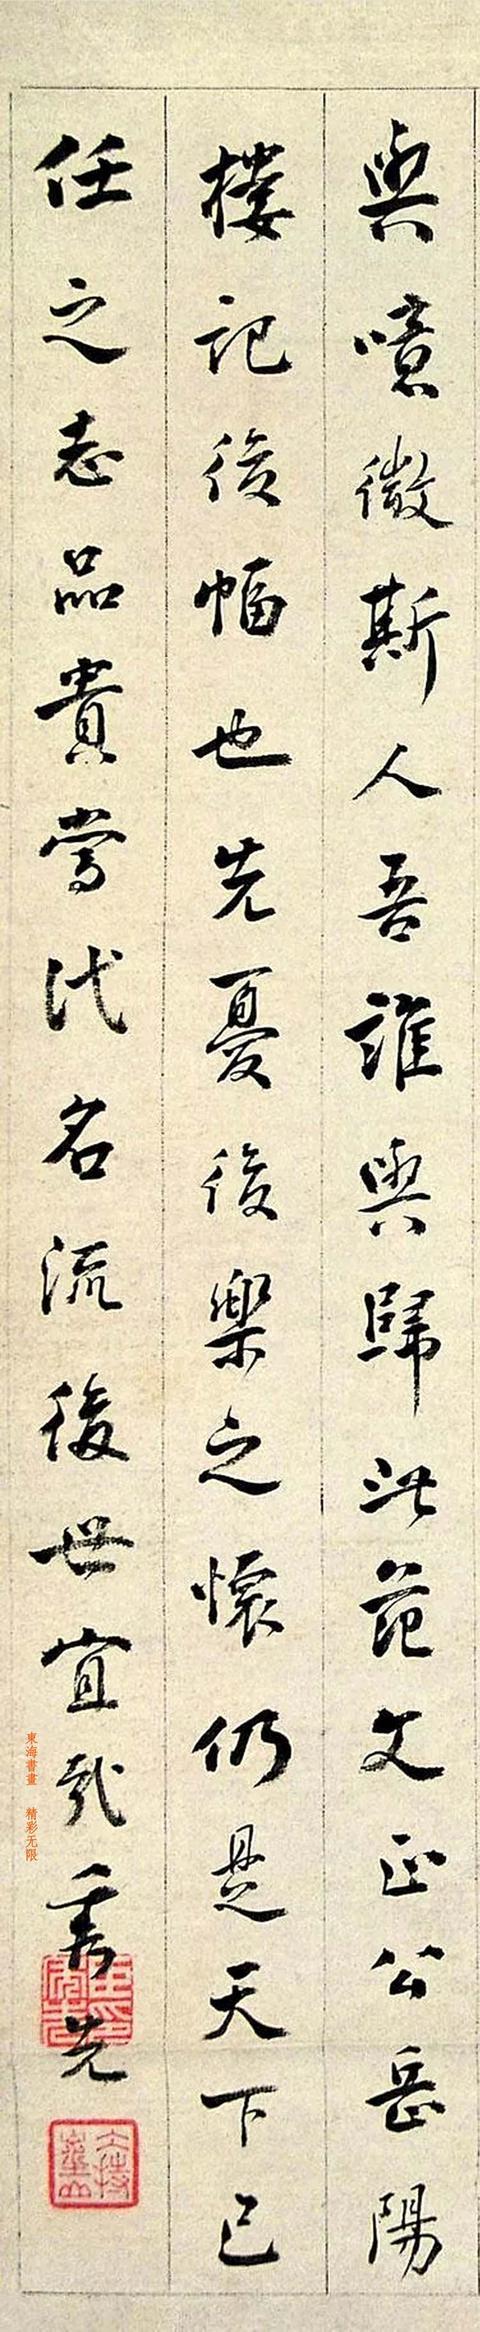 與噫微斯人吾誰與歸此范文正公岳陽
樓記後幅也先憂後樂之懷仍是天下己
任之志品貴當代名流後世宜哉
東海書畫 精彩无限